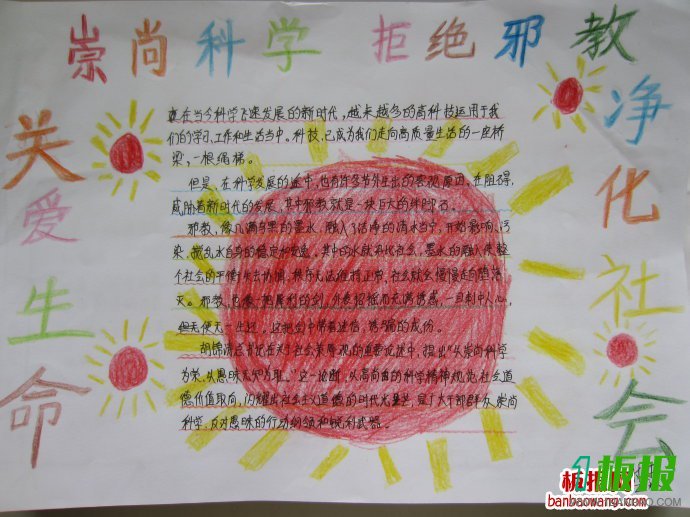 崇尚科学 拒绝邪教
关爱生命
净化社会
在当今科学飞速发展的新时代,越来越多的高科技运用于我
们的学习、工作和生活当中。科技,已成为我们走向高质量生活的一座桥
梁,一根绳梯。
但是,在科学发展的途中,也有许多节外生出的客观原因,在阻碍,
威胁着新时代的发展,其中邪教就是一块巨大的绊脚石。
邪教,像几滴乌黑的墨水,融入了洁净的清水当中,开始影响,污
染,搅乱水自身的稳定和安逸。其中的水就和代社会,墨水的融入,使整
个社会的平衡失去协调,秩序无法维持正常,社会就会慢慢走向堕落
灭。邪教,也像一把犀利的剑,外表招摇而充满诱惑,一旦刺中人心,
这把剑中带着迷信,诱骗的成份。
胡锦涛总书记在关于社会荣辱观的重要论述中,提出“以崇尚科学
为荣,以愚昧无知为耻。”这一论断,以高尚的科学精神规范社会道
德价值取向,闪耀出社会主义道德的时代光
科学,反对愚昧的行动纲领和锐利武器。
板报
banbaowang.com